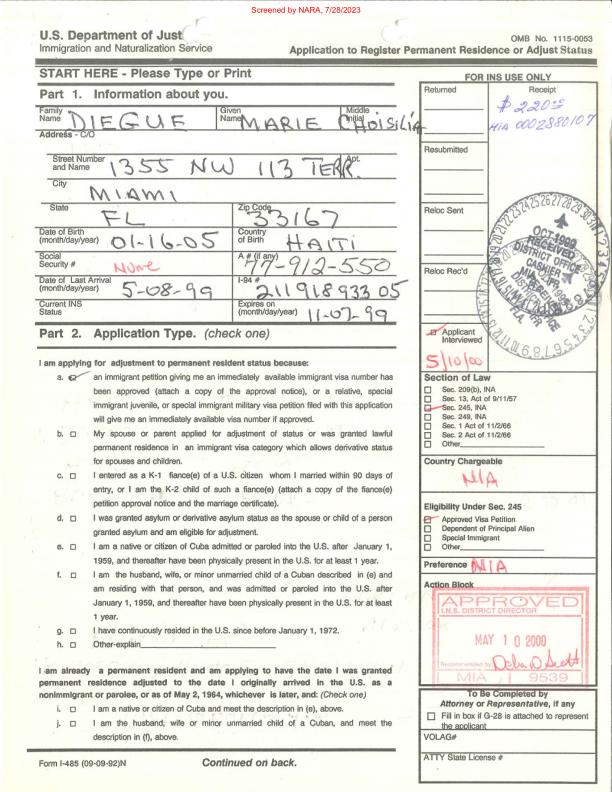 Screened by NARA, 7/28/2023
U.S. Department of Just
Immigration and Naturalization Service
OMB No. 1115-0053
Application to Register Permanent Residence or Adjust Status
START HERE - Please Type or Print
FOR INS USE ONLY
Part 1. Information about you.
Family Name DIEGUE
Given Name MARIE
Middle Initial CHOISILIA
Address - C/O
Street Number and Name 1355 NW 113 TERR.
Apt.
City MIAMI
State FL
Zip Code 33167
Date of Birth (month/day/year) 01-16-05
Country of Birth HAITI
Social Security # None
A # (if any) 77-912-550
Date of Last Arrival (month/day/year) 5-08-99
I-94 # 211918933 05
Current INS Status
Expires on (month/day/year) 11-07-99
Part 2. Application Type. (check one)
I am applying for adjustment to permanent resident status because:
a. an immigrant petition giving me an immediately available immigrant visa number has
been approved (attach a copy of the approval notice), or a relative, special
immigrant juvenile, or special immigrant military visa petition filed with this application
will give me an immediately available visa number if approved.
b. My spouse or parent applied for adjustment of status or was granted lawful
permanent residence in an immigrant visa category which allows derivative status
for spouses and children.
c. I entered as a K-1 fiance(e) of a U.S. citizen whom I married within 90 days of
entry, or I am the K-2 child of such a fiance(e) (attach a copy of the fiance(e)
petition approval notice and the marriage certificate).
d. I was granted asylum or derivative asylum status as the spouse or child of a person
granted asylum and am eligible for adjustment.
e. I am a native or citizen of Cuba admitted or paroled into the U.S. after January 1,
1959, and thereafter have been physically present in the U.S. for at least 1 year.
f. I am the husband, wife, or minor unmarried child of a Cuban described in (e) and
am residing with that person, and was admitted or paroled into the U.S. after
January 1, 1959, and thereafter have been physically present in the U.S. for at least
1 year.
g. I have continuously resided in the U.S. since before January 1, 1972.
h. Other-explain
I am already a permanent resident and am applying to have the date I was granted
permanent residence adjusted to the date I originally arrived in the U.S. as a
nonimmigrant or parolee, or as of May 2, 1964, whichever is later, and: (Check one)
i. I am a native or citizen of Cuba and meet the description in (e), above.
j. I am the husband, wife or minor unmarried child of a Cuban, and meet the
description in (f), above.
Form I-485 (09-09-92)N
Continued on back.
Returned
Receipt
$ 220.00
MIA 0002880107
Resubmitted
Reloc Sent
OCT 1999
RECEIVED
DISTRICT OFFICE
CASHIER
Reloc Rec'd
Applicant
Interviewed
5/10/00
Section of Law
Sec. 209(b), INA
Sec. 13, Act of 9/11/57
Sec. 245, INA
Sec. 249, INA
Sec. 1 Act of 11/2/66
Sec. 2 Act of 11/2/66
Other
Country Chargeable
N/A
Eligibility Under Sec. 245
Approved Visa Petition
Dependent of Principal Alien
Special Immigrant
Other
Preference N/A
Action Block
APPROVED
I.N.S. DISTRICT DIRECTOR
MAY 10 2000
Recommended by
MIA 9539
To Be Completed by
Attorney or Representative, if any
Fill in box if G-28 is attached to represent
the applicant
VOLAG#
ATTY State License #